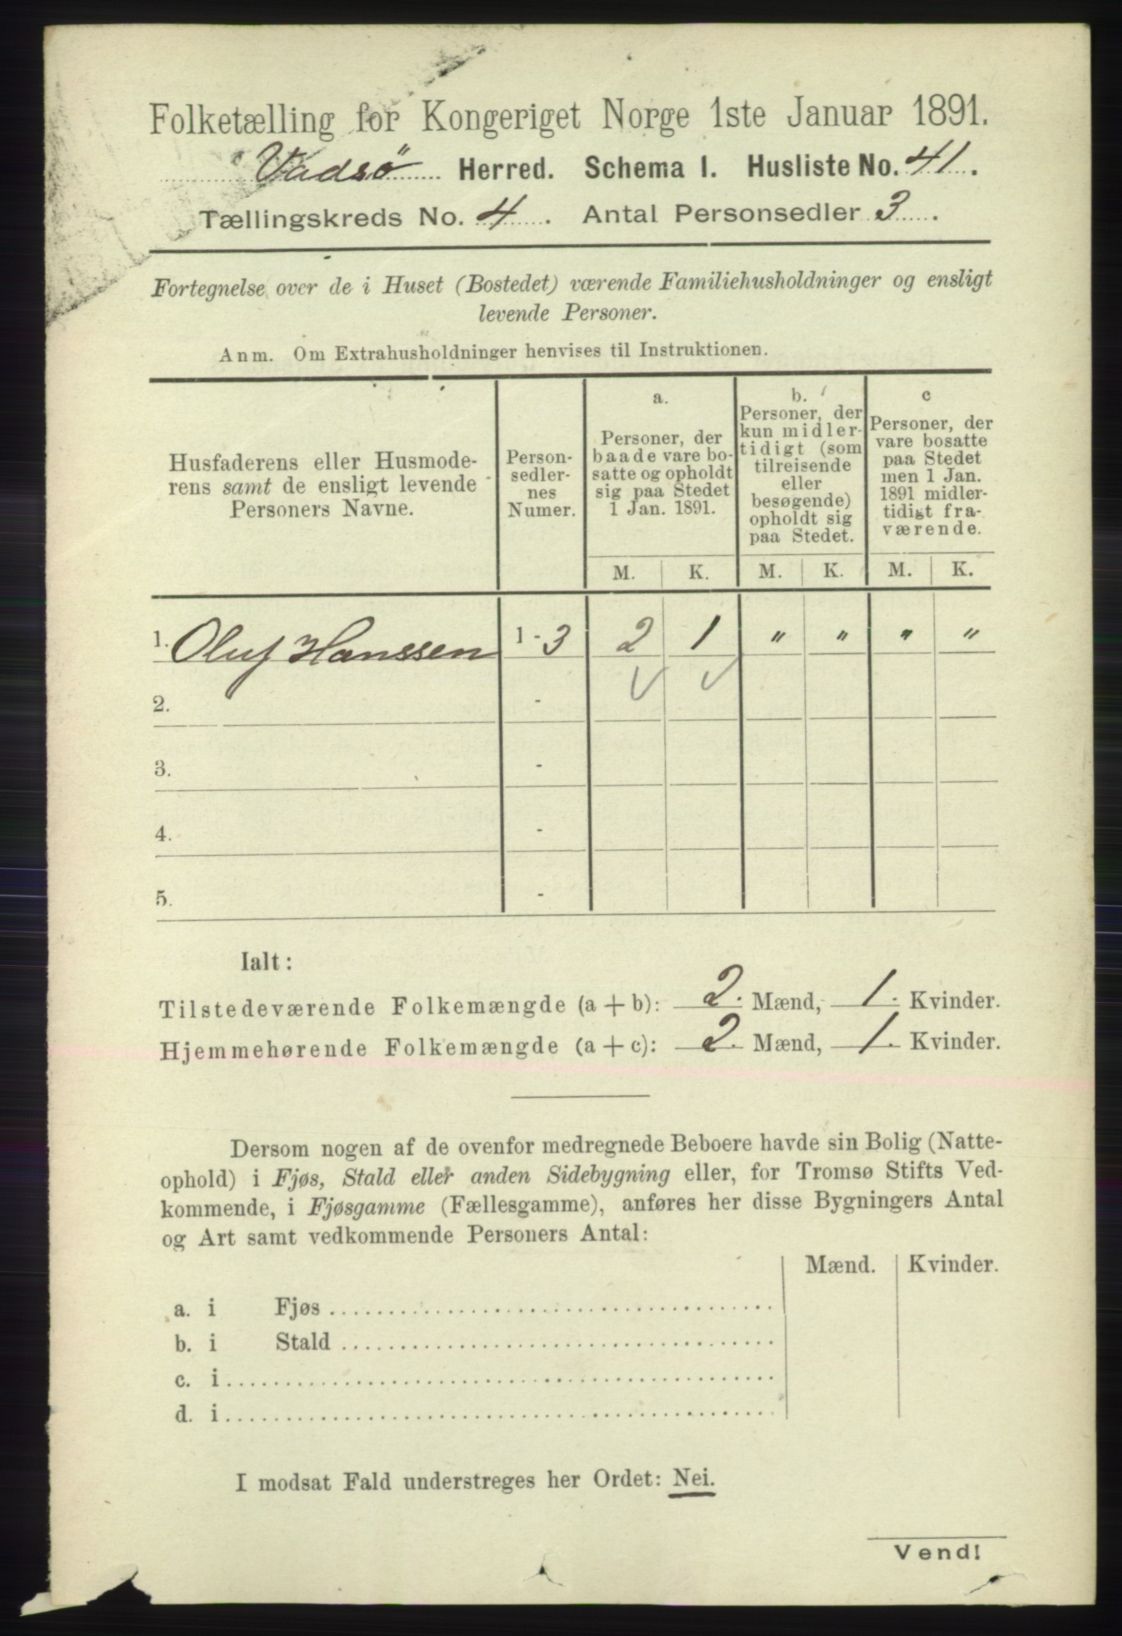 Folketælling for Kongeriget Norge 1ste Januar 1891.
Vadsö Herred. Schema I. Husliste No. 41.
Tællingskreds No. 4. Antal Personsedler 3.
Fortegnelse over de i Huset (Bostedet) værende Familiehusholdninger og ensligt
levende Personer.
Anm. Om Extrahusholdninger henvises til Instruktionen.
Husfaderens eller Husmode-
rens samt de ensligt levende
Personers Navne.
Person-
sedler-
nes
Numer.
a.
Personer, der
baade vare bo-
satte og opholdt
sig paa Stedet
1 Jan. 1891.
b.
Personer, der
kun midler-
tidigt (som
tilreisende
eller
besøgende)
opholdt sig
paa Stedet.
c
Personer, der
vare bosatte
paa Stedet
men 1 Jan.
1891 midler-
tidigt fra-
værende.
M. K. M. K. M. K.
1. Oluf Hanssen 1 - 3 2 1 " " " "
2. -
3. -
4. -
5. -
Ialt:
Tilstedeværende Folkemængde (a + b): 2. Mænd, 1. Kvinder.
Hjemmehørende Folkemængde (a + c): 2. Mænd, 1. Kvinder.
Dersom nogen af de ovenfor medregnede Beboere havde sin Bolig (Natte-
ophold) i Fjøs, Stald eller anden Sidebygning eller, for Tromsø Stifts Ved-
kommende, i Fjøsgamme (Fællesgamme), anføres her disse Bygningers Antal
og Art samt vedkommende Personers Antal:
Mænd. Kvinder.
a. i Fjøs
b. i Stald
c. i
d. i
I modsat Fald understreges her Ordet: Nei.
Vend!